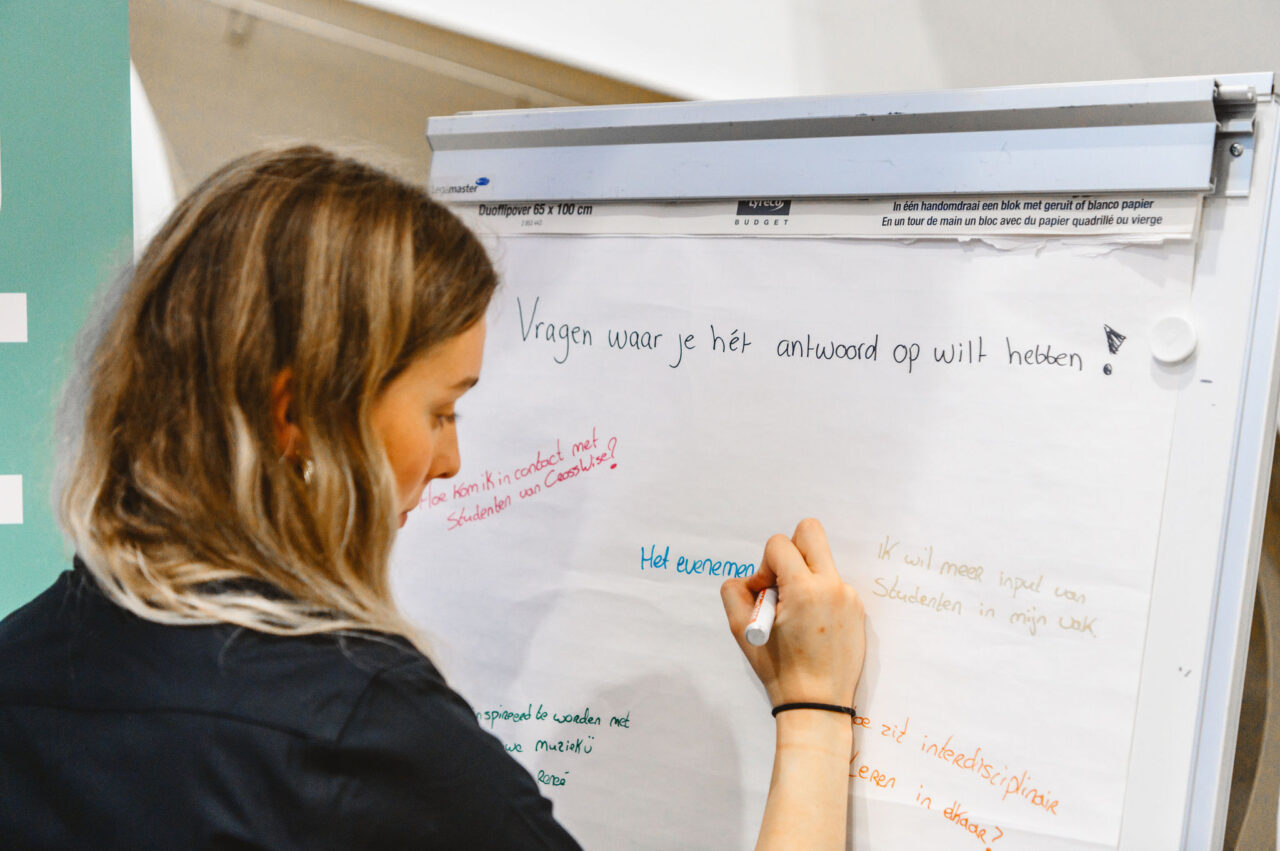 Legamaster
Duoflipover 65 x 100 cm
Lyreco
BUDGET
In één handomdraai een blok met geruit of blanco papier
En un tour de main un bloc avec du papier quadrillé ou vierge
Vragen waar je hét antwoord op wilt hebben!
Hoe kom ik in contact met
Studenten van CrossWise?
Het evenemen
Ik wil meer input van
Studenten in mijn vak
nspireerd te worden met
we muziek
Reneé
oe zit interdisciplinair
Leren in elkaar?